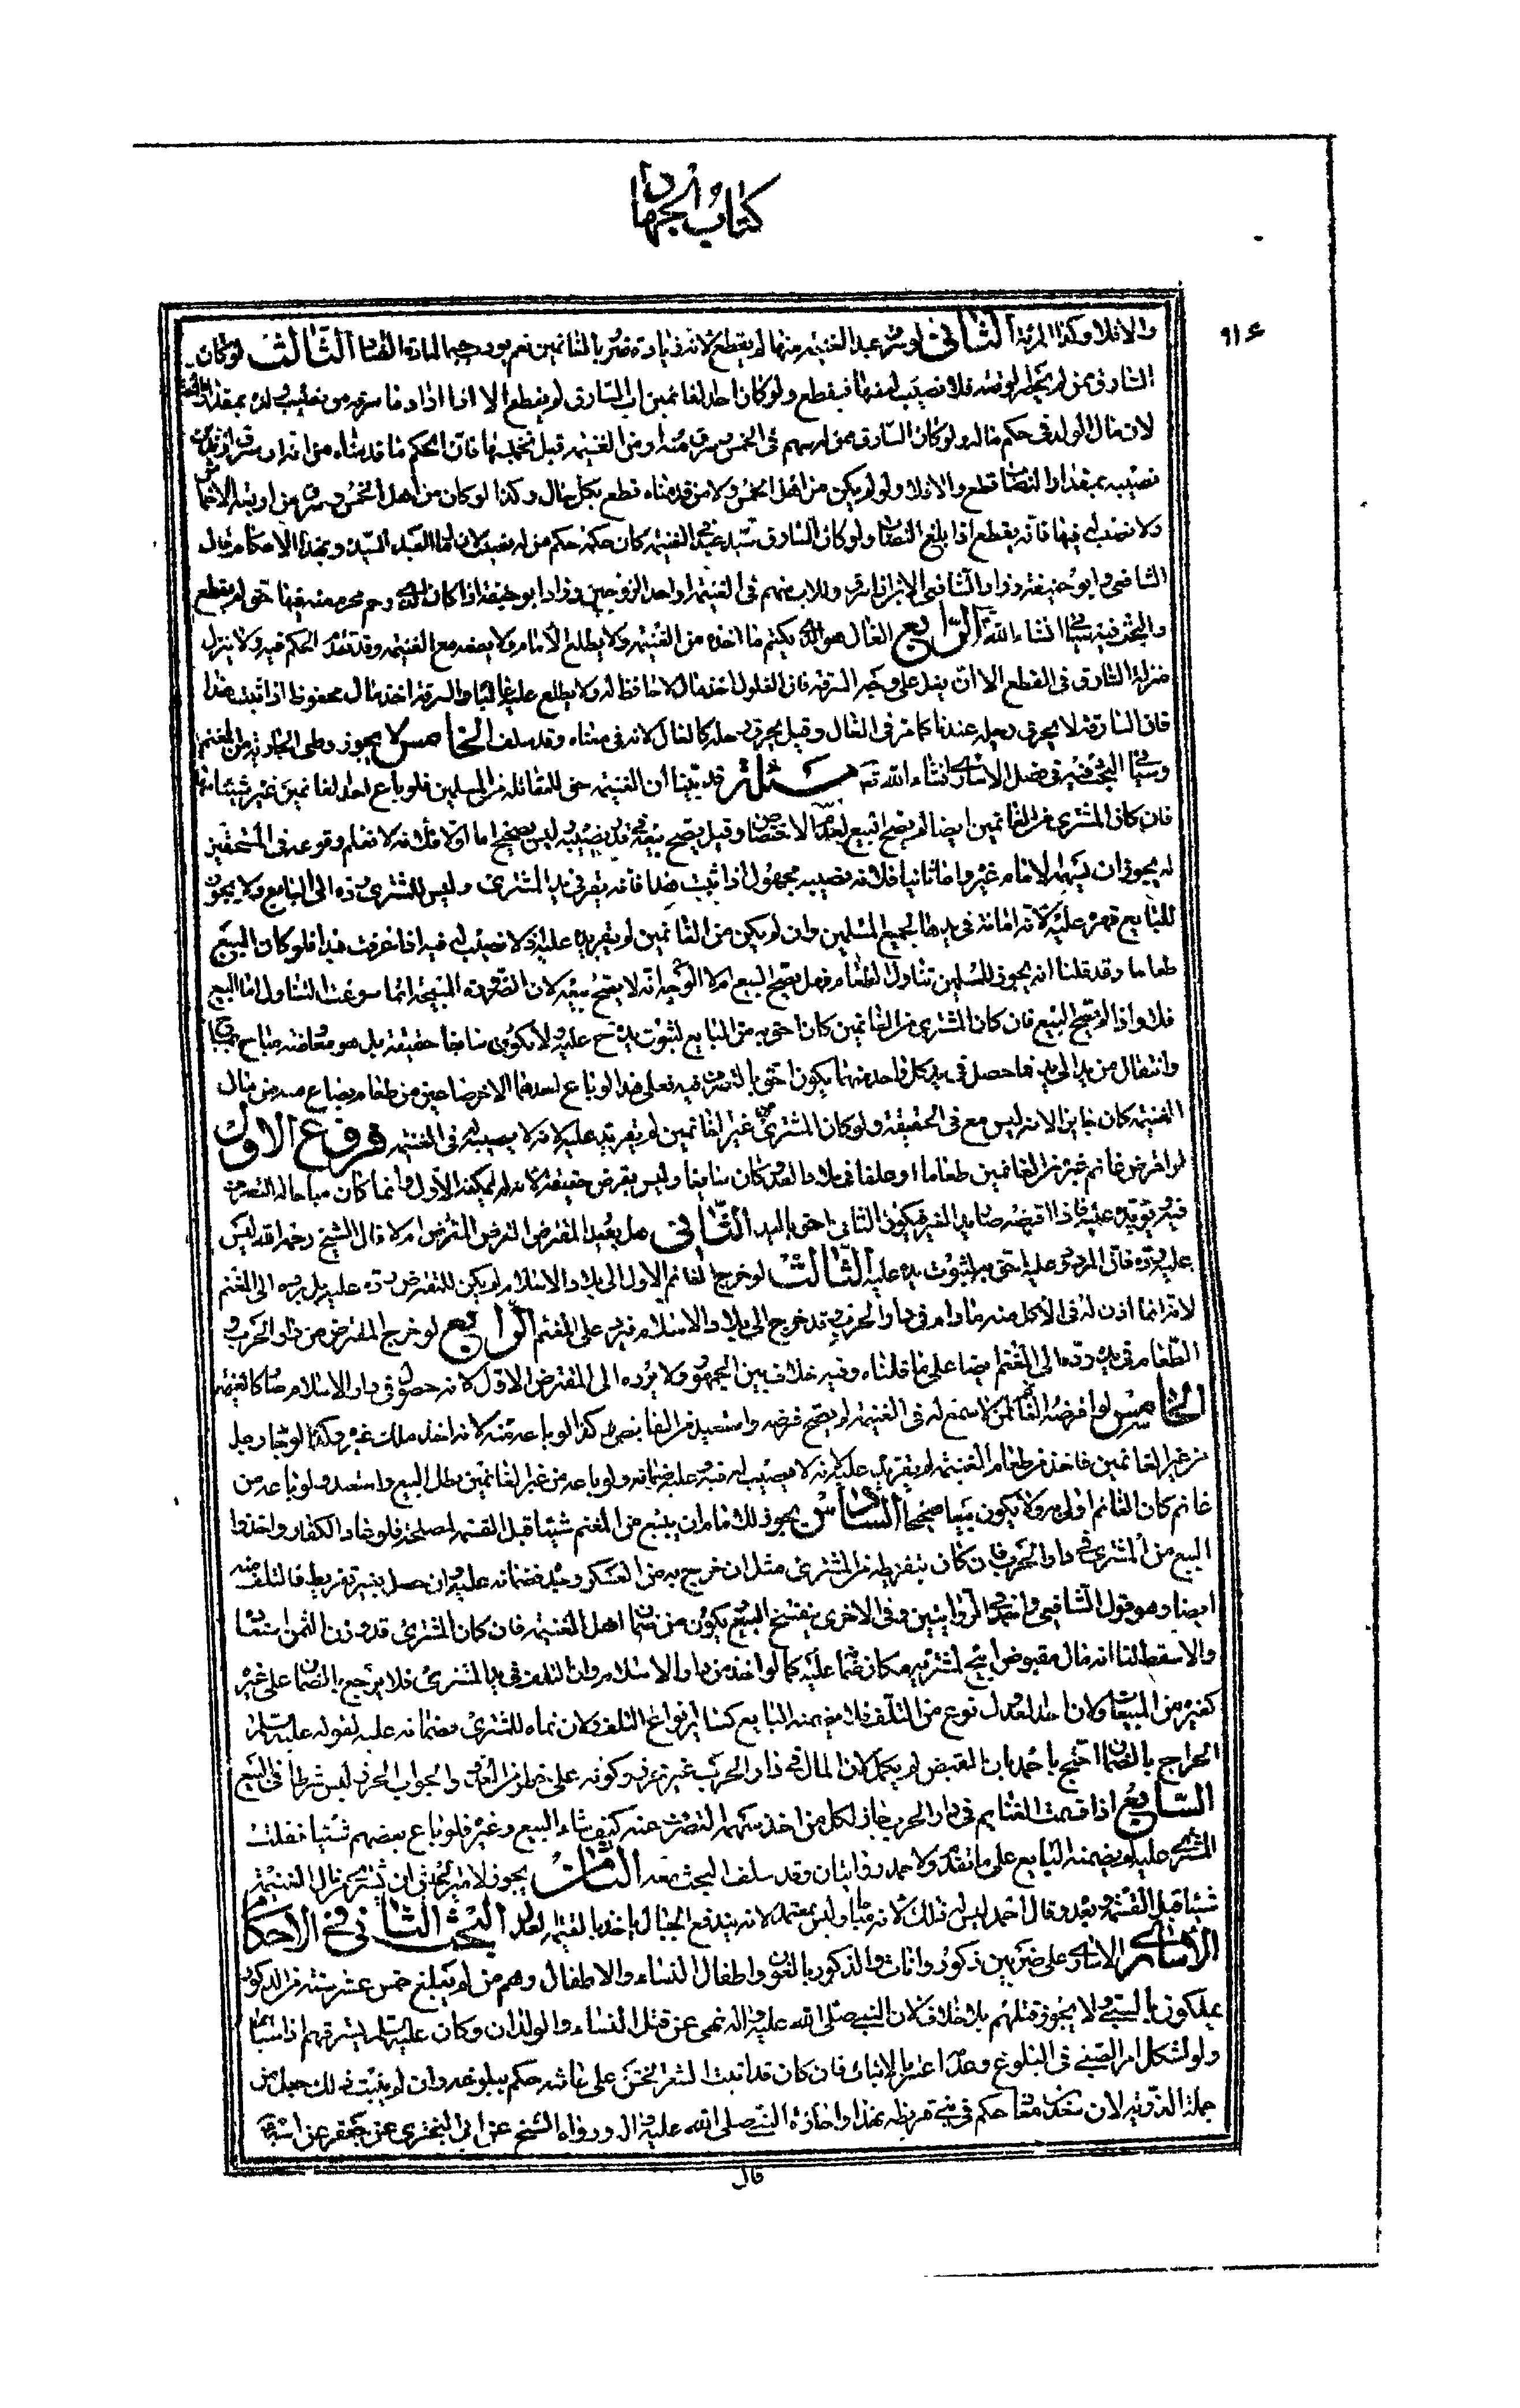 كتاب الجهاد
٩١٤
والا فلا وكذا المرئة الثاني لو سرق عبد الغنيمة منها لم يقطع لانه زيادة ضرر بالغانمين نعم يؤدب حسما لمادة الفساد الثالث لو كان
السارق ممن لم يحضر الوقعة فلا نصيب له منها فيقطع ولو كان احد الغانمين اب السارق لم يقطع الا اذا زاد ما سرقه من نصيب ولده بمقدار
لان مال الولد في حكم ماله ولو كان السارق ممن له سهم في الخمس فسرق منه او من الغنيمة قبل تخميسها فان الحكم ما قدمناه من انه ان سرق ازيد من
نصيبه بمقدار النصاب قطع والا فلا ولو لم يكن من اهل الخمس ولا من قدمناه قطع بكل حال وكذا لو كان من اهل الخمس وسرق من اربعة الاخماس
ولا نصيب له فيها فانه يقطع اذا بلغ النصاب ولو كان السارق سيد عبد في الغنيمة كان حكمه حكم من له نصيب لان مال العبد للسيد وبهذه الاحكام قال
الشافعي وابو حنيفة وزاد الشافعي الابن اذا سرق وللاب سهم في الغنيمة او احد الزوجين وزاد ابو حنيفة اذا كان لذي رحم محرم منه فيها حق لم يقطع
والبحث فيه سيأتي انشاء الله الرابع الغال هو الذي يكتم ما اخذه من الغنيمة ولا يطلع الامام ولا يضعه مع الغنيمة وقد تقدم الحكم فيه ولا ينزل
منزلة السارق في القطع الا ان يفعل على وجه السرقة فان الغلول اخذ مال لا حافظ له ولا يطلع عليه غالبا والسرقة اخذ مال محفوظ اذا ثبت هذا
فان السارق لا يحرق رحله عندنا كما مر في الغال وقيل يحرق رحله كالغال لانه في معناه وقد سلف الخامس لا يجوز وطى الجارية من المغنم
وسيأتي البحث فيه في فصل الاسارى انشاء الله تعالى مسئلة قد بينا ان الغنيمة حق للمقاتلة من المسلمين فلو باع احد الغانمين غيره شيئا منها
فان كان المشتري من الغانمين ايضا لم يصح البيع لعدم الاختصاص وقيل يصح بيعه في قدر نصيبه وليس بصحيح اما اولا فلانه لا نعلم وقوعه في المستحقين
له يجوز ان يسهم الامام غيره واما ثانيا فلانه نصيبه مجهول اذا ثبت هذا فانه يقر في يد المشتري وليس للمشتري رده الى البايع ولا يجوز
للبايع قهره عليه لانه امانة في يدها لجميع المسلمين وان لم يكن من الغانمين لم يقر يده عليه اذ لا نصيب له فيه اذا عرفت هذا فلو كان المبيع
طعاما وقد قلنا انه يجوز للمسلمين تناول الطعام فهل يصح البيع ام لا الوجه انه لا يصح بيعه لان الضرورة المبيحة انما سوغت التناول اما البيع
فلا واذا لم يصح البيع فان كان المشتري من الغانمين كان احق به من البايع لثبوت يده ح عليه ولا يكون بيعا حقيقة بل هو معاوضة مباح بمباح
وانتقال من يد الى يد فما حصل في يد كل واحد منهما يكون احق بالتصرف فيه فعلى هذا لو باع احدهما الاخر صاعين من طعام بصاع منه من مال
الغنيمة كان جايزا لانه ليس مع في الحقيقة ولو كان المشتري من غير الغانمين لم يقر يده عليه لانه لا نصيب له في الغنيمة فروع الاول
لو اقرض غانم غيره من الغانمين طعاما او علفا في بلاد العدو كان سايغا وليس بقرض حقيقة لانه لم يملكه الاول وانما كان مباحا له التصرف
فيه وتقر يده عليه فاذا اقبضه صار يد الغير فيكون الثاني احق باليد الثاني هل يعيد المقترض القرض المقرض ام لا قال الشيخ رحمه الله ليس
عليه رده فان المردود عليه احق به لثبوت يده عليه الثالث لو خرج الغانم الاول الى بلاد الاسلام لم يكن للمقترض رده عليه بل يرده الى المغنم
لانه انما اذن له في الاكل منه ما دام في دار الحرب وقد خرج الى بلاد الاسلام فيرد على المغنم الرابع لو خرج المقترض من دار الحرب و
الطعام في يده رده الى المغنم ايضا على ما قلناه وفيه خلاف بين الجمهور ولا يرده الى المقترض الاول لانه حصوله في دار الاسلام صار كالغنيمة
الخامس لو اقرضه الغانم لمن لا سهم له في الغنيمة لم يصح قرضه واستعيد من القابض وكذا لو باعه منه لانه اخذ ملك غيره وكذا لو جاء رجل
من غير الغانمين فاخذ من طعام الغنيمة لم يقر يده عليه لانه لا نصيب له فيه وعليه ضمانه ولو باعه من غير الغانمين بطل البيع واستعيد ولو باعه من
غانم كان الغانم اولى به ولا يكون بيعا صحيحا السادس يجوز للامام ان يبيع من المغنم شيئا قبل القسمة لمصلحة فلو عاد الكفار واخذوا
البيع من المشتري في دار الحرب فان كان بتفريط من المشتري مثل ان خرج به من العسكر وحده فضمانه عليه وان حصل بغير تفريط فالتلف منه
ايضا وهو قول الشافعي واحمد في احدى الروايتين وفي الاخرى ينفسخ البيع ويكون من ضمان اهل الغنيمة فان كان المشتري قد وزن الثمن استعاد
والا سقط لنا انه مال مقبوض ابيح لمشتريه فكان ضمانه عليه كما لو اخذ من دار الاسلام ولان التلف في يد المشتري فلا يرجع بالضمان على غيره
كغيره من المبيعات ولان اخذ العدو نوع من التلف فلا يضمنه البايع كسائر انواع التلف ولان نماءه للمشتري فضمانه عليه لقوله عليه السلام
الخراج بالضمان احتج احمد بان القبض لم يكمل لان المال في دار الحرب غير محرز وكونه على خطر من العدو والجواب الحرز ليس شرطا في البيع
السابع اذا قسمت الغنايم في دار الحرب جاز لكل من اخذ سهمه التصرف عنه كيف شاء البيع وغيره فلو باع بعضهم شيئا فغلب
المشتري عليه لم يضمنه البايع على ما تقدم ولاحمد روايتان وقد سلف البحث معه الثامن يجوز لامير الجيش ان يشتري من مال الغنيمة
شيئا قبل القسمة وبعده وقال احمد ليس له ذلك لانه يحابا وليس بمعتمد لانه يندفع الخيال باخذ بالقيمة العدل البحث الثاني في الاحكام
الاسارى الاسارى على ضربين ذكور واناث والذكور بالغون واطفال النساء والاطفال وهم من لم يبلغ خمس عشر سنة من الذكور
يملكون بالسبي ولا يجوز قتلهم بلا خلاف لان النبي صلى الله عليه واله نهى عن قتل النساء والولدان وكان عليه السلام يسترقهم اذا سباهم
ولو اشكل امر الصبي في البلوغ وعدمه اعتبر بالانبات فان كان قد انبت الشعر الخشن على عانته حكم ببلوغه وان لم ينبت ذلك جعل من
جملة الذرية لان سعد بن معاذ حكم في بني قريظة بهذا واجازه النبي صلى الله عليه واله ورواه الشيخ عن ابي البختري عن جعفر عن ابيه
قال